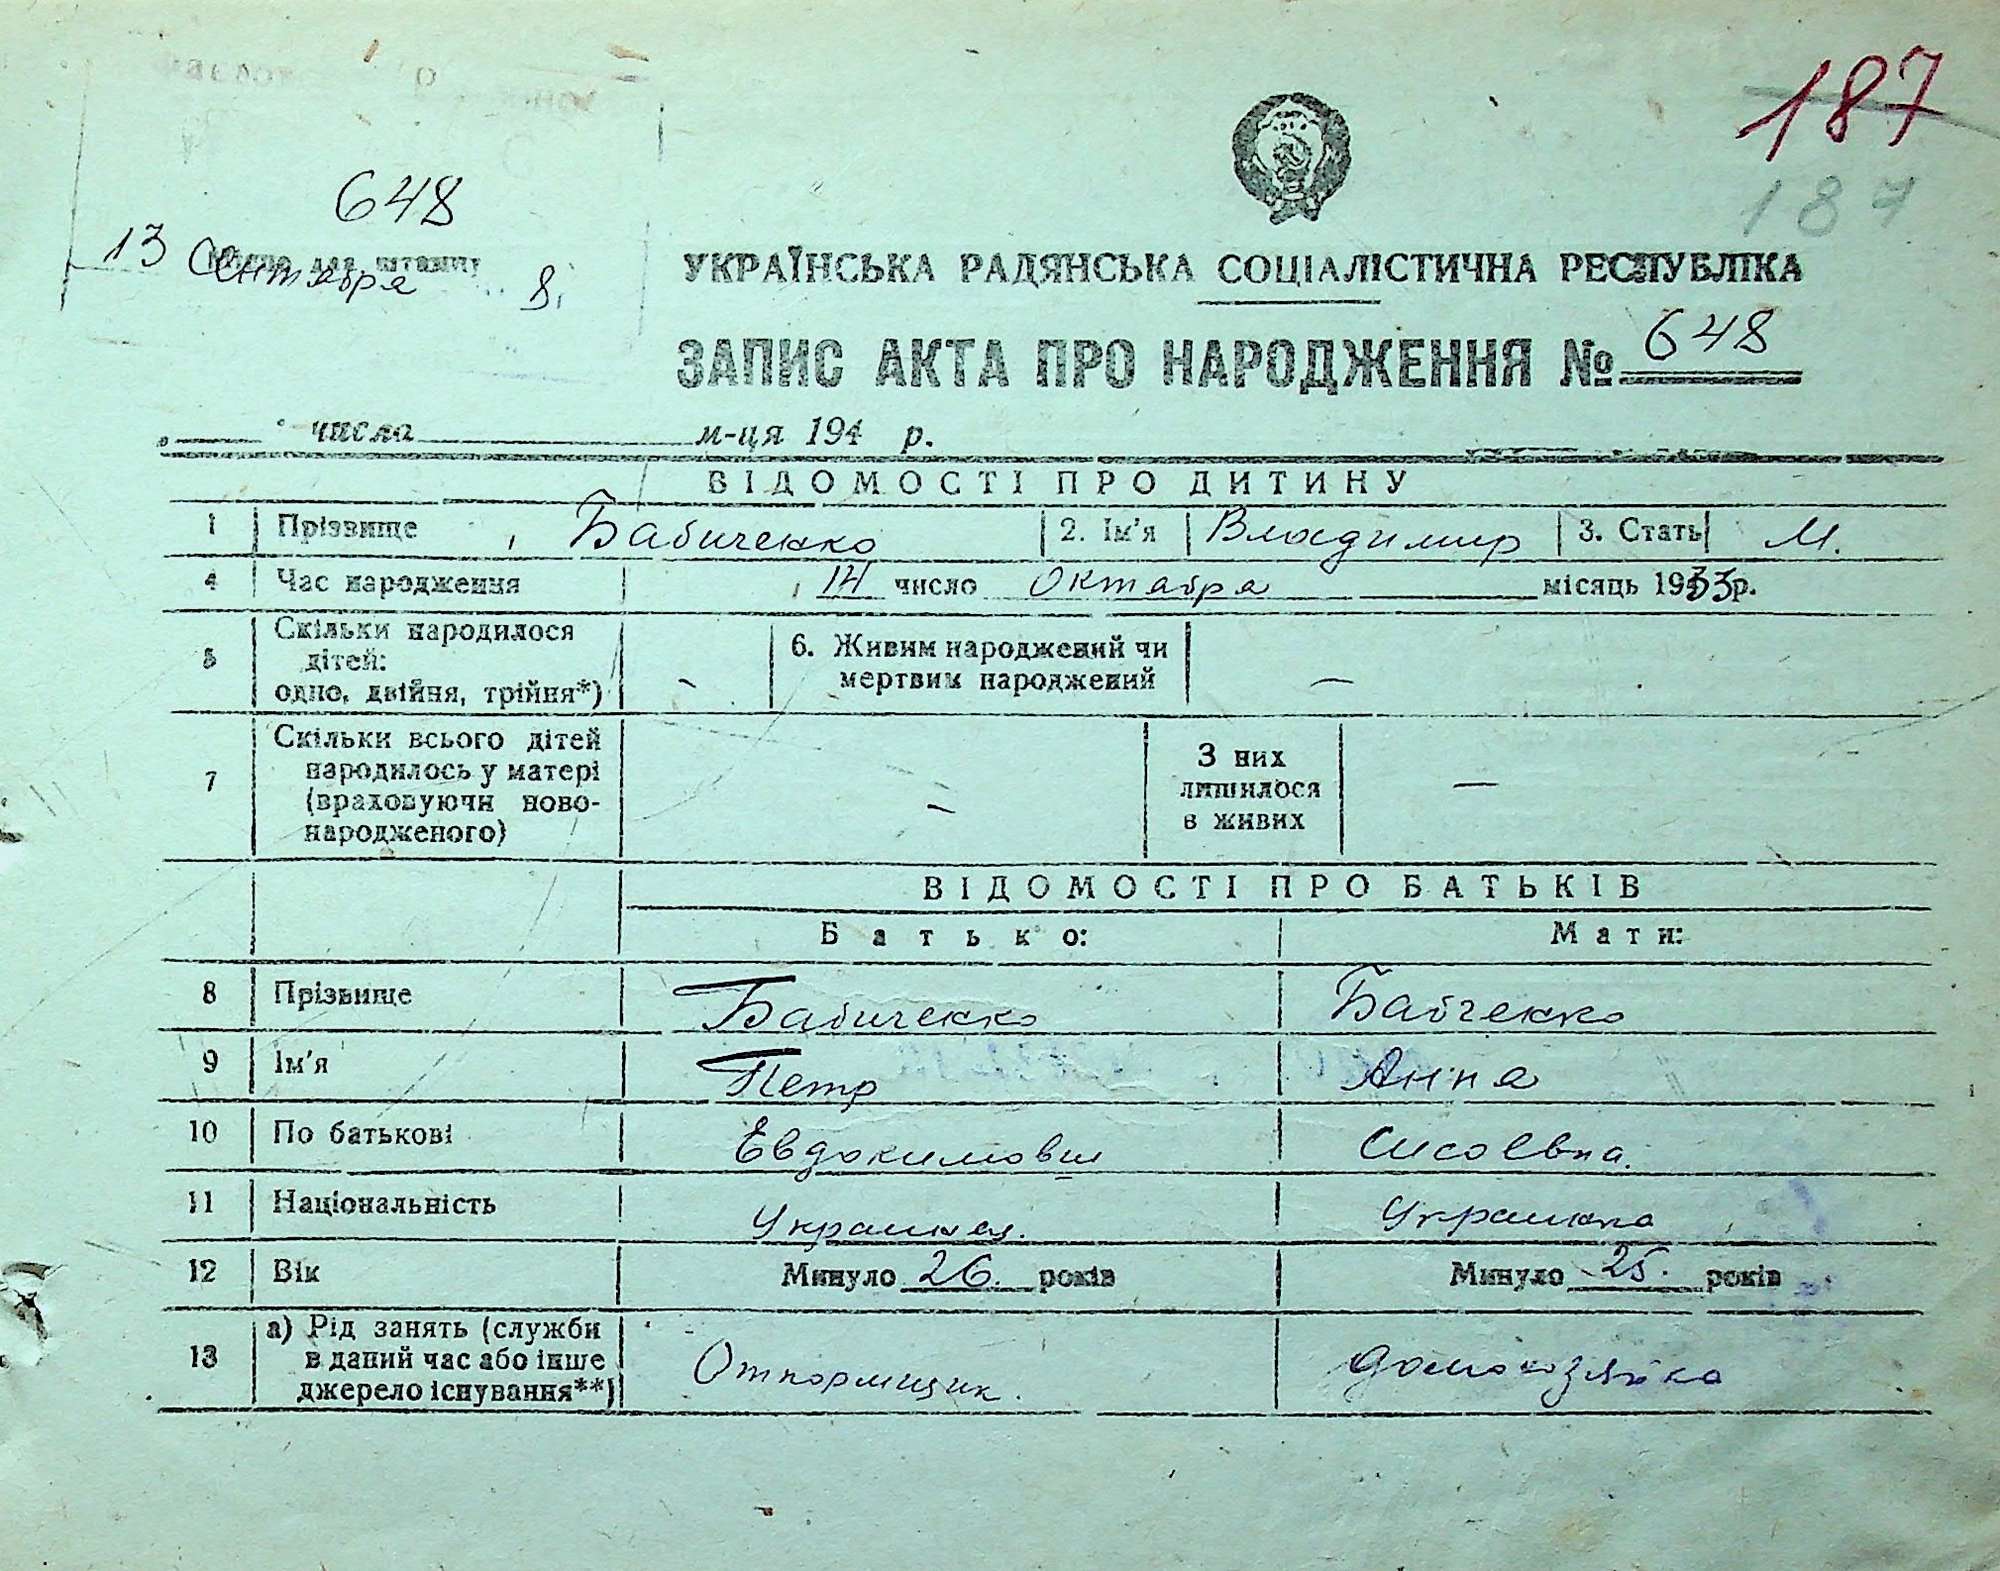 187
187
648
13 Сентября 8.
Місце для штампу
УКРАЇНСЬКА РАДЯНСЬКА СОЦІАЛІСТИЧНА РЕСПУБЛІКА
ЗАПИС АКТА ПРО НАРОДЖЕННЯ № 648
" " числа м-ця 194 р.
ВІДОМОСТІ ПРО ДИТИНУ
1 Прізвище Бабиченко 2. Ім'я Владимир 3. Стать М.
4 Час народження 14 число Октября місяць 1933 р.
5 Скільки народилося дітей: одно, двійня, трійня*) - 6. Живим народжений чи мертвим народжений -
7 Скільки всього дітей народилось у матері (враховуючи ново-народженого) - З них лишилося в живих -
ВІДОМОСТІ ПРО БАТЬКІВ
Батько: Мати:
8 Прізвище Бабиченко Бабченко
9 Ім'я Петр Анна
10 По батькові Евдокимович Сисоевна.
11 Національність Украинец. Украинка
12 Вік Минуло 26. років Минуло 25. років
13 а) Рід занять (служби в даний час або інше джерело існування**) Откормщик. домохозяйка